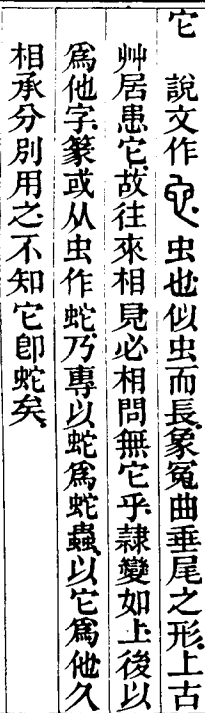 它 說文作 虫也似虫而長象冤曲垂尾之形上古
艸居患它故往來相見必相問無它乎隸變如上後以
爲他字篆或从虫作蛇乃專以蛇爲蛇蟲以它爲他久
相承分別用之不知它卽蛇矣